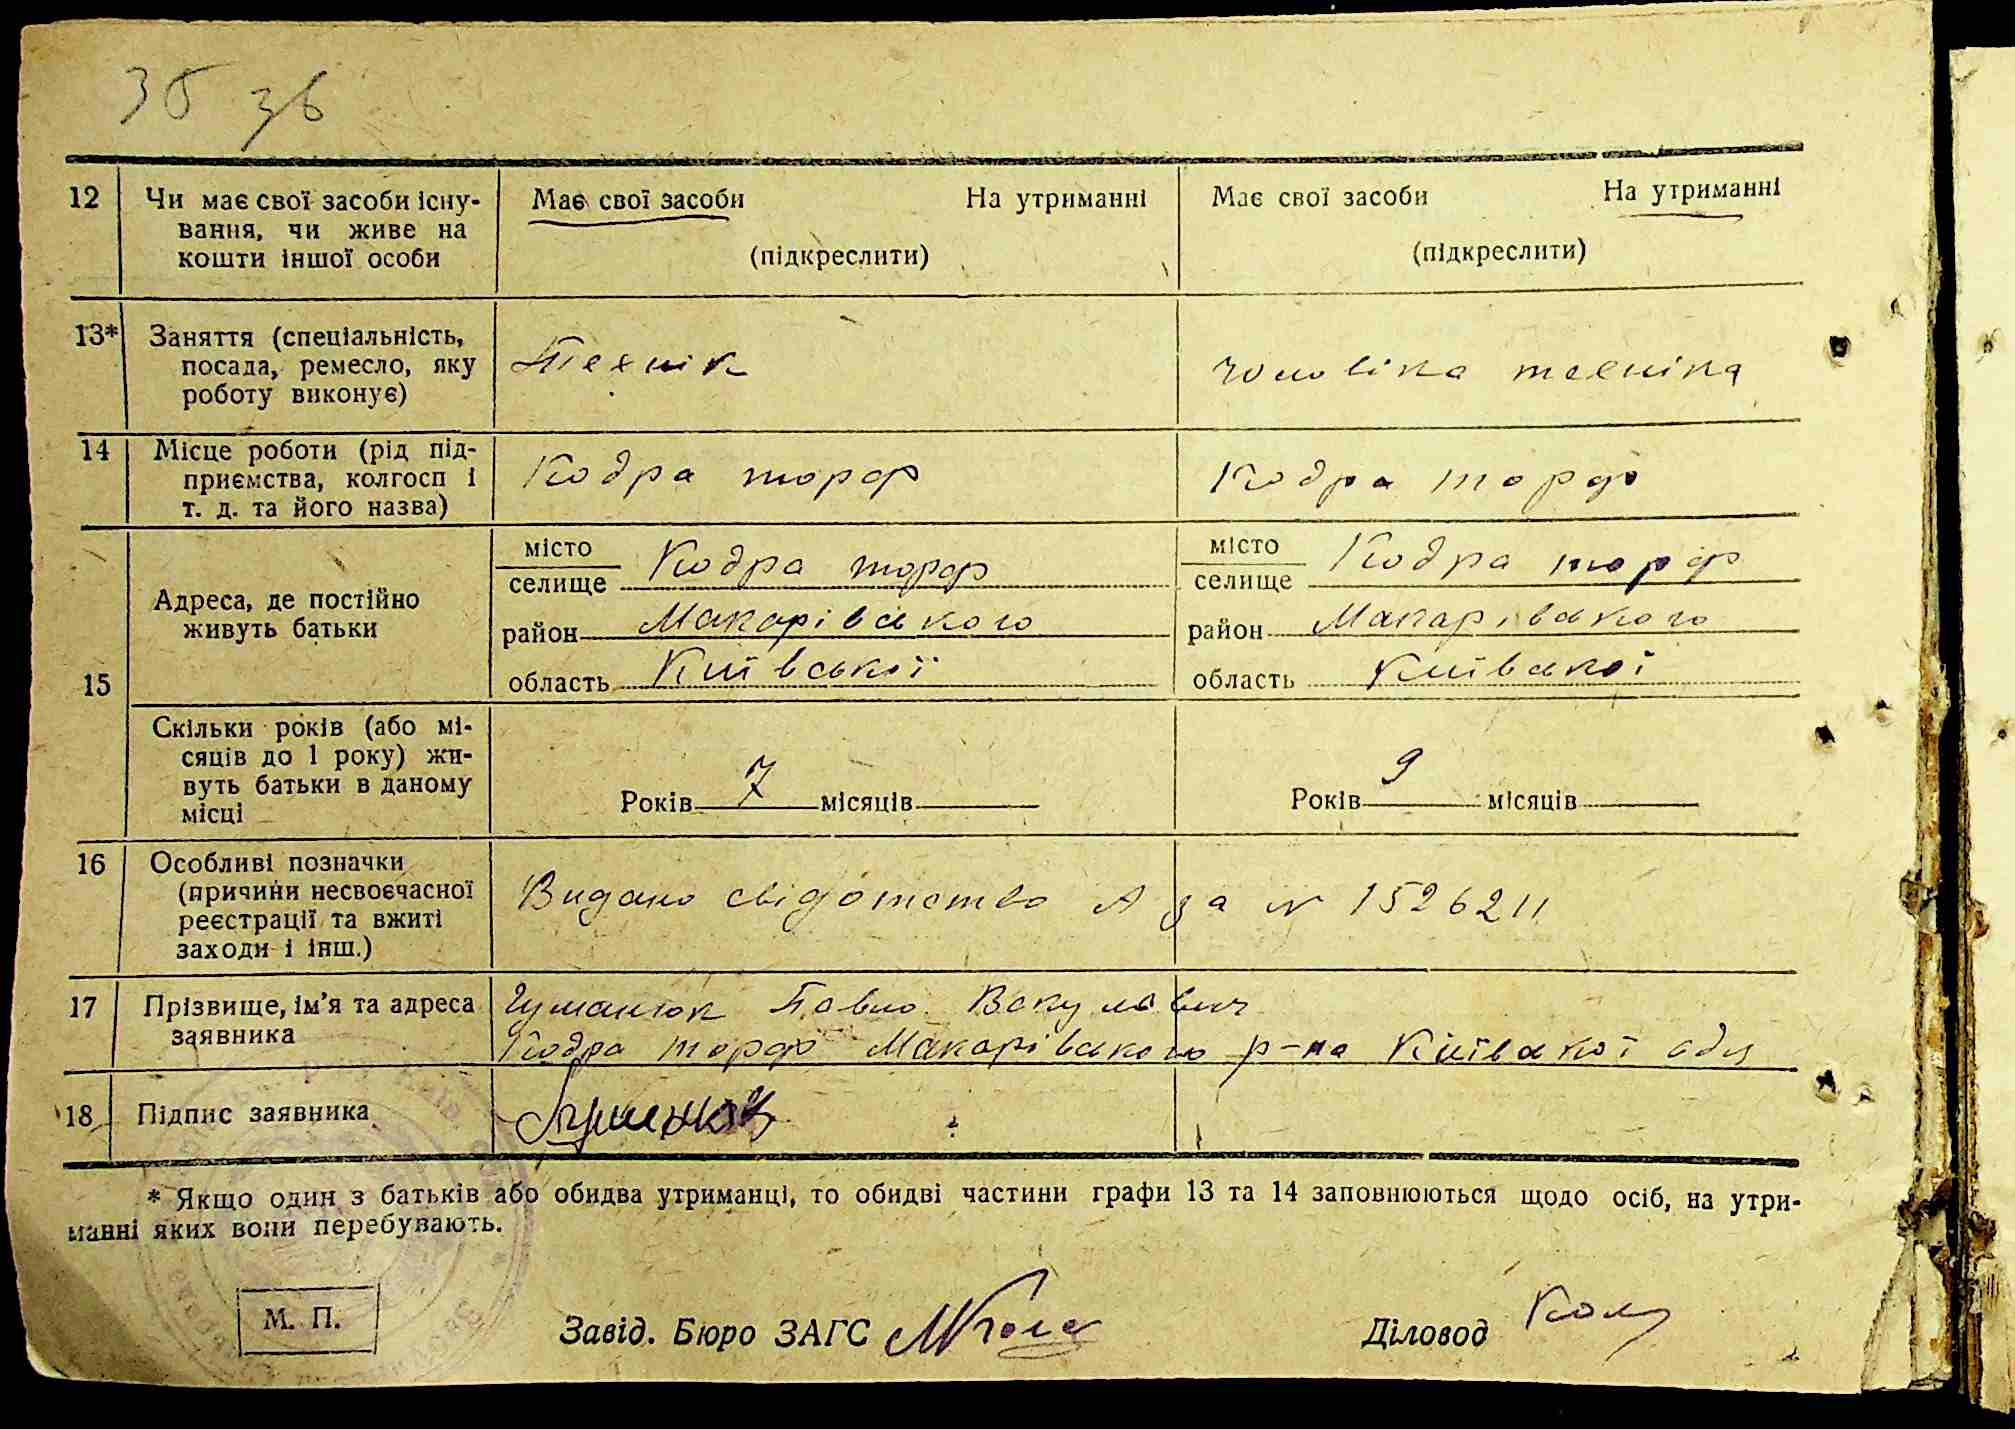 3б зв
12 Чи має свої засоби існу- Має свої засоби На утриманні Має свої засоби На утриманні
вання, чи живе на
кошти іншої особи (підкреслити) (підкреслити)
13* Заняття (спеціальність, Технік чоловіка техніка
посада, ремесло, яку
роботу виконує)
14 Місце роботи (рід під- Кодра торф Кодра торф
приємства, колгосп і
т. д. та його назва)
15 Адреса, де постійно
живуть батьки
місто Кодра торф місто Кодра торф
селище селище
район Макарівського район Макарівського
область Київської область Київської
Скільки років (або мі-
сяців до 1 року) жи-
вуть батьки в даному
місці
Років 7 місяців Років 9 місяців
16 Особливі позначки
(причини несвоєчасної Видано свідотство А за № 1526211
реєстрації та вжиті
заходи і інш.)
17 Прізвище, ім'я та адреса Гуманюк Павло Вакулович
заявника Кодра торф Макарівського р-на Київської обл
18 Підпис заявника
* Якщо один з батьків або обидва утриманці, то обидві частини графи 13 та 14 заповнюються щодо осіб, на утри-
манні яких вони перебувають.
М. П. Завід. Бюро ЗАГС Діловод